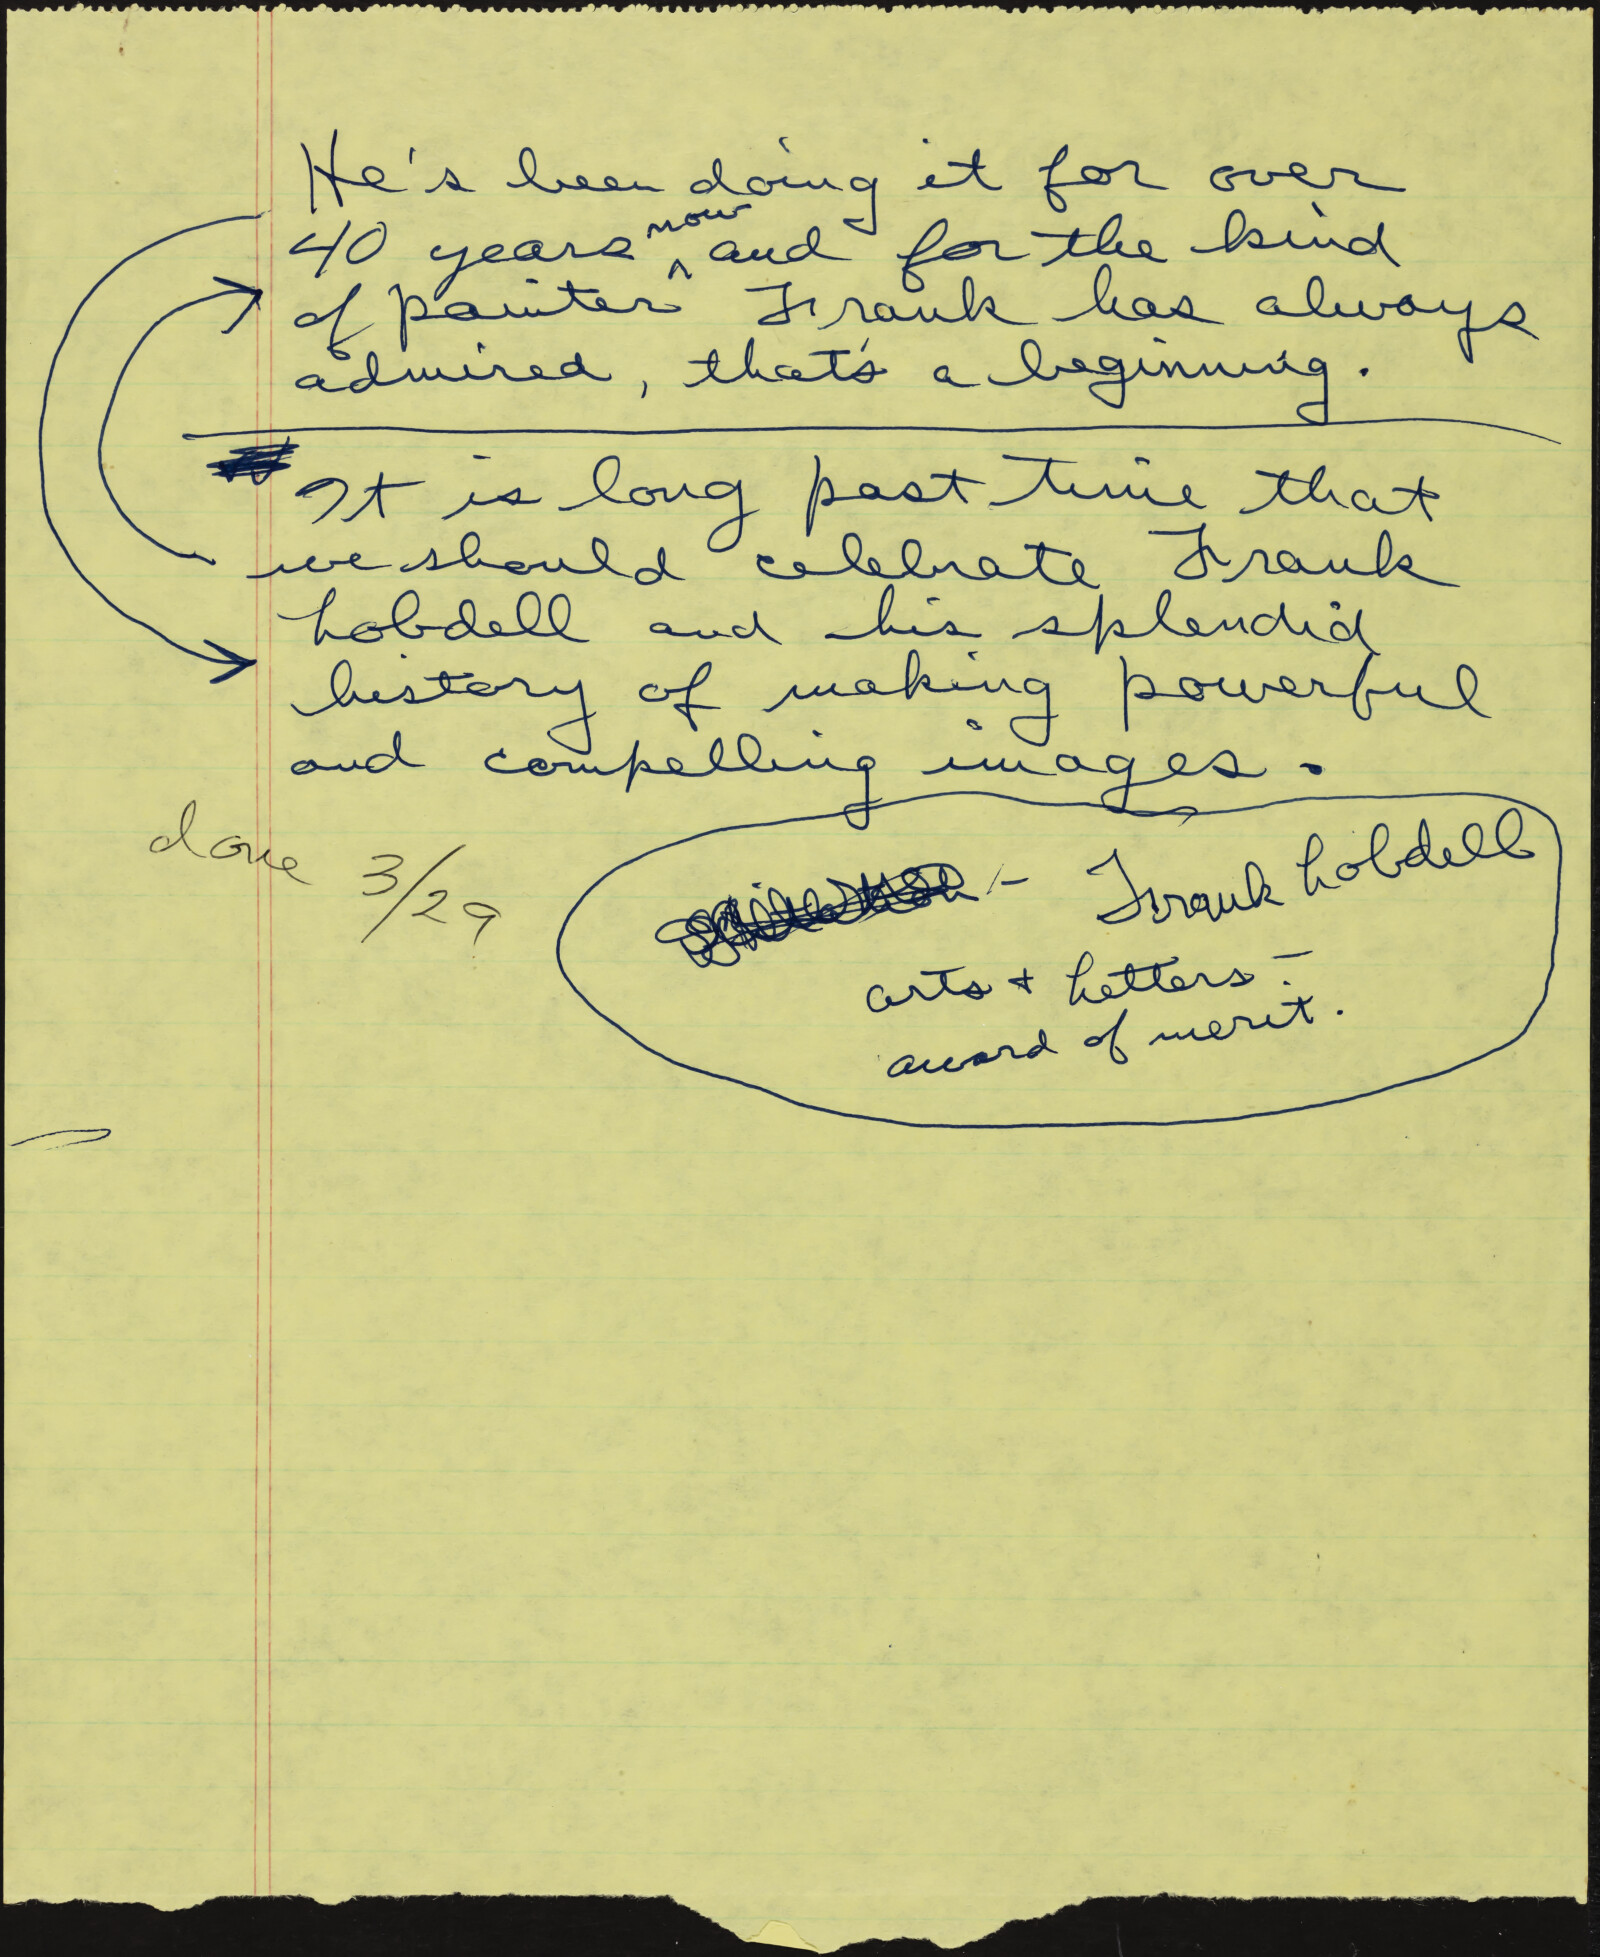 He's been doing it for over
40 years now and for the kind
of painter Frank has always
admired, that's a beginning.
It is long past time that
we should celebrate Frank
Lobdell and his splendid
history of making powerful
and compelling images.
done 3/29
- Frank Lobdell
arts + Letters -
award of merit.